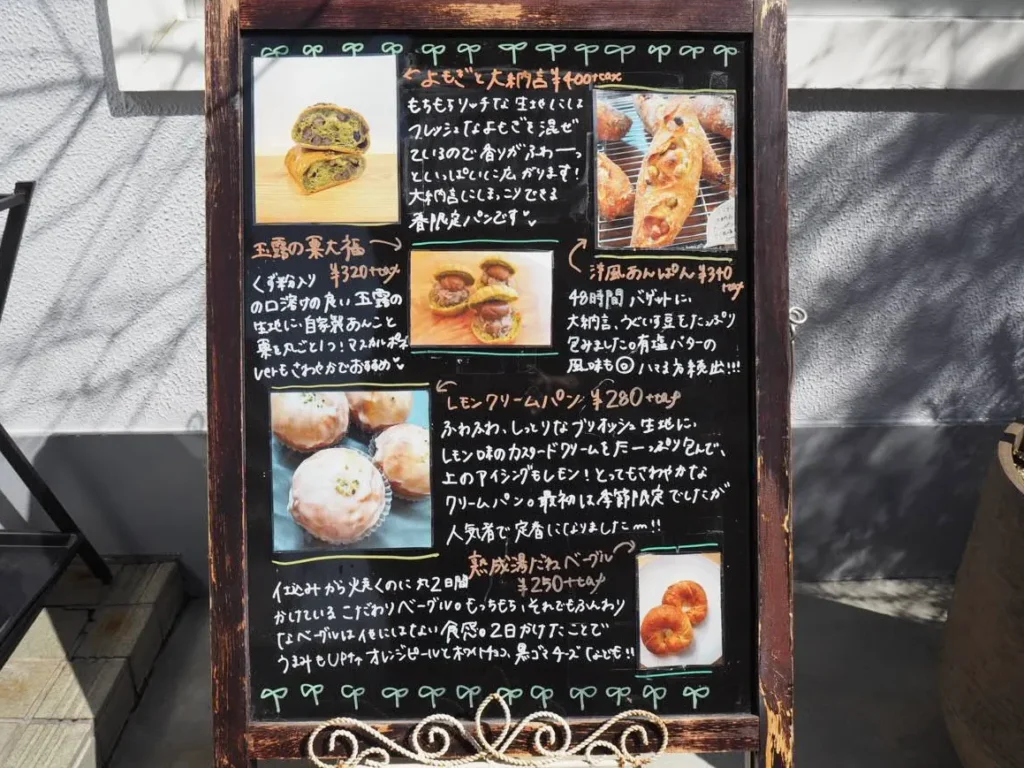 よもぎと大納言 ¥400+tax
もちもちリッチな生地にに
フレッシュなよもぎを混ぜ
ているので香りがふわーっ
といっぱいに広がります!
大納言にほっこりできる
春限定パンです♡
玉露の栗大福
¥320+tax
くず粉入り
の口溶けの良い玉露の
生地に、自家製あんこと
栗を丸ごと1つ!マスカルポーネ
verもさわやかでおすすめ♡
洋風あんぱん ¥340
+tax
48時間バゲットに、
大納言、うぐいす豆をたっぷり
包みました。有塩バターの
風味も◎ハマる方続出!!!
レモンクリームパン ¥280+tax
ふわふわ、しっとりなブリオッシュ生地に、
レモン味のカスタードクリームをたーっぷり包んで、
上のアイシングもレモン!とってもさわやかな
クリームパン。最初は季節限定でしたが
人気者で定番になりましたm!!
熟成湯だねベーグル
¥250+tax
仕込みから焼くのに丸2日間
かけているこだわりベーグル。もっちもち、それでもふんわり
なベーグルは他にはない食感。2日かけたことで
うまみもUP↑↑オレンジピールとホワイトチョコ、黒ゴマチーズなども!!